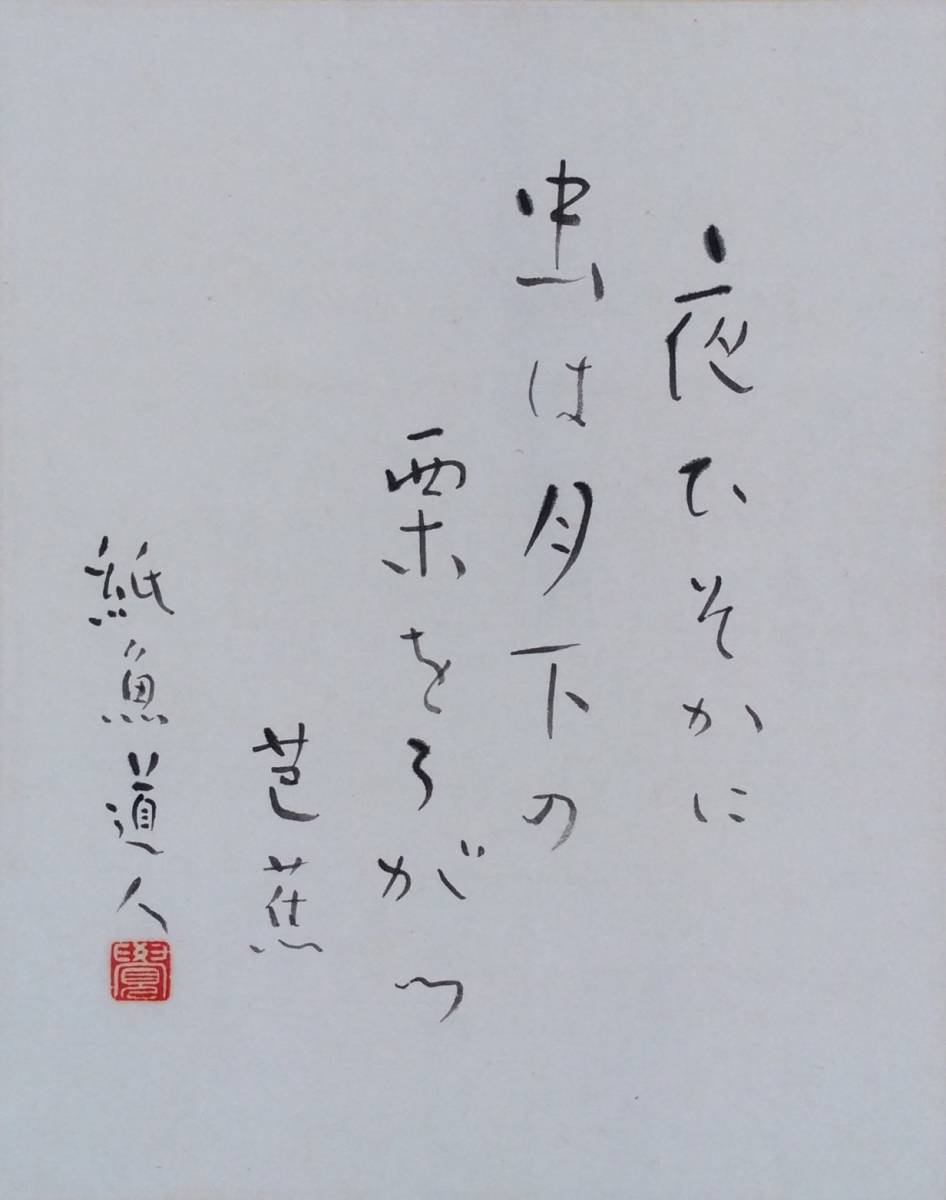 夜ひそかに
虫は月下の
栗をうがつ
芭蕉
紙魚道人
覺